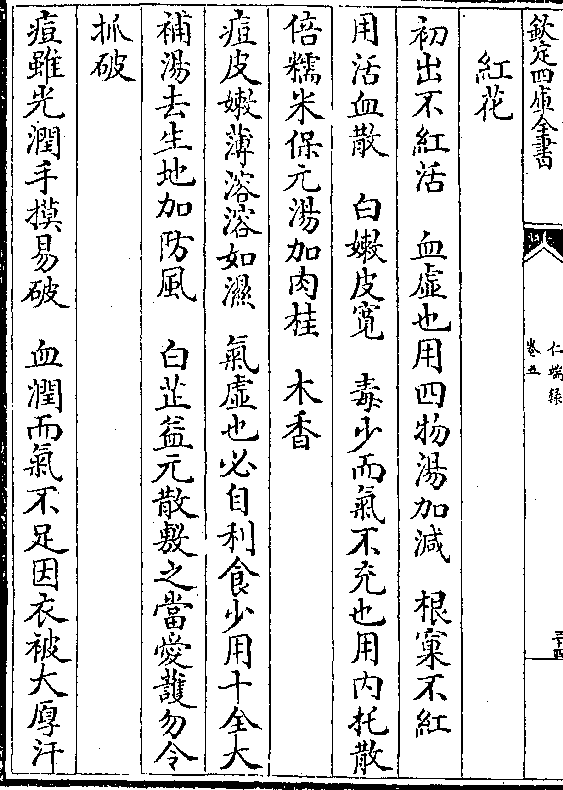 欽定四庫全書
仁端錄
卷五
二十四
紅花
初出不紅活　血虛也用四物湯加減　根窠不紅
用活血散　白嫩皮寬　毒少而氣不充也用内托散
倍糯米保元湯加肉桂　木香
痘皮嫩薄溶溶如濕　氣虛也必自利食少用十全大
補湯去生地加防風　白芷益元散敷之當愛護勿令
抓破
痘雖光潤手摸易破　血潤而氣不足因衣被大厚汗